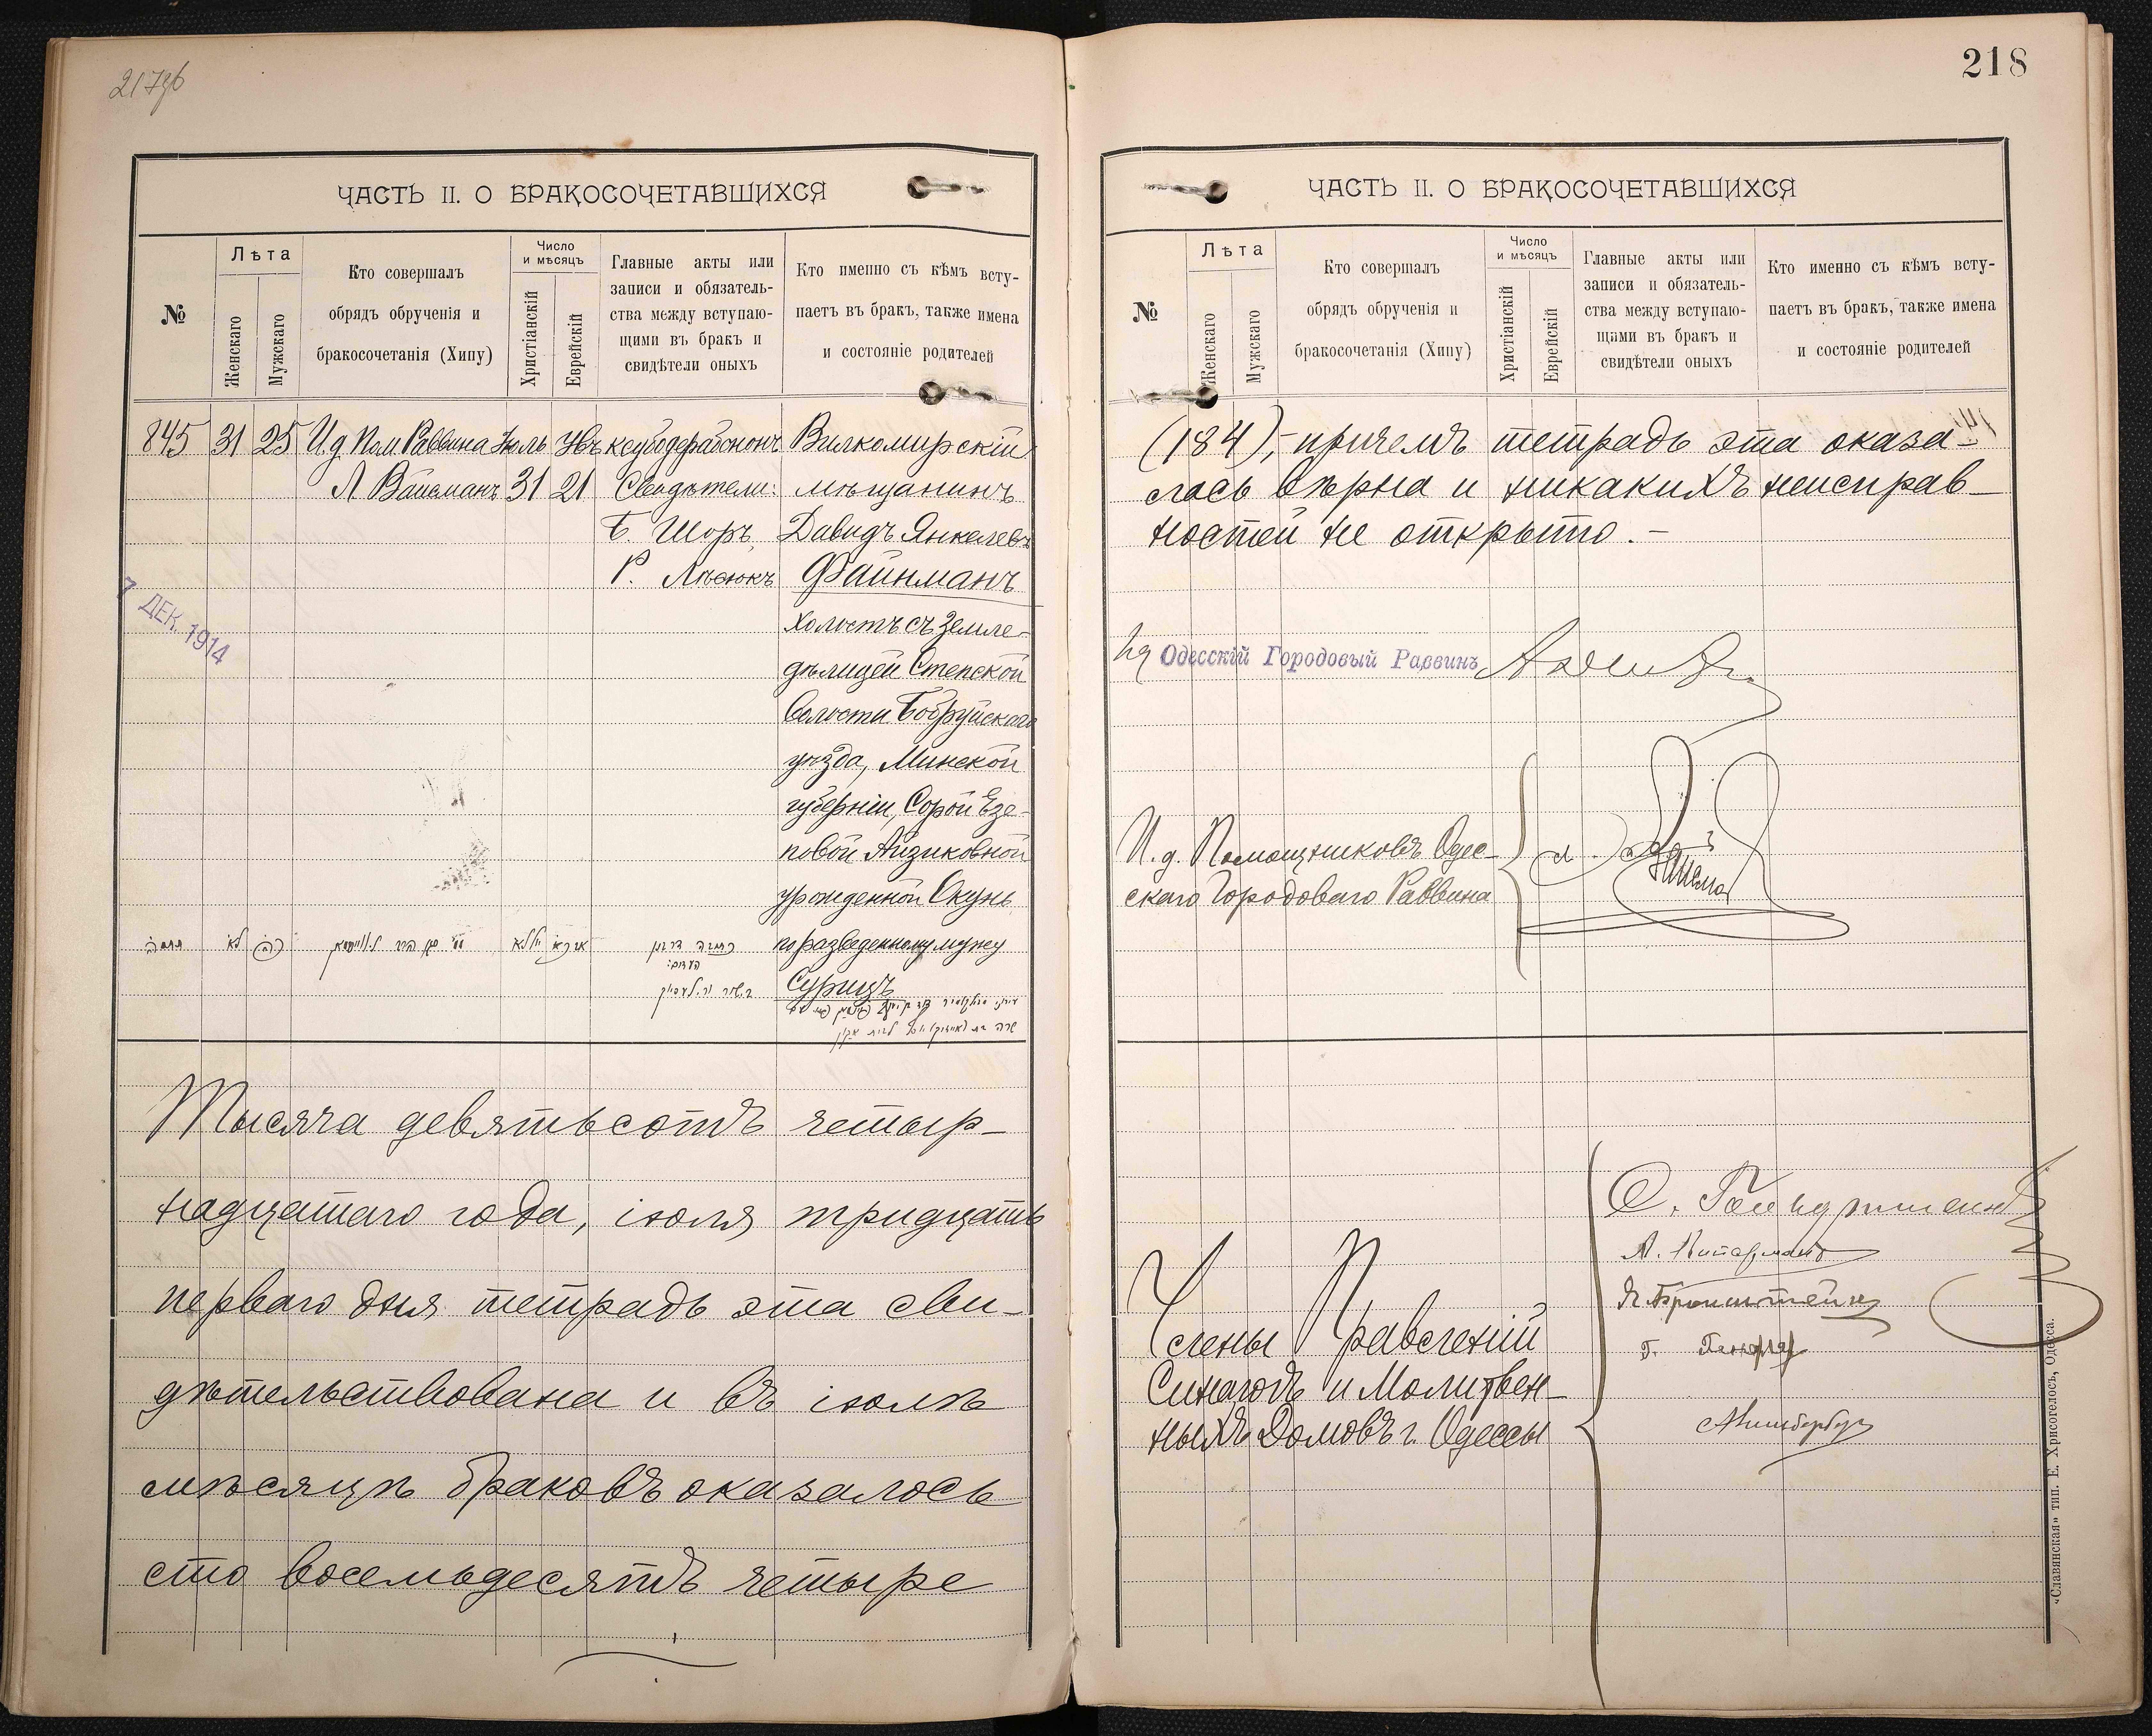 217об
ЧАСТЬ II. О БРАКОСОЧЕТАВШИХСЯ
№
Лѣта
Женскаго
Мужскаго
Кто совершалъ
обрядъ обрученія и
бракосочетанія (Хипу)
Число
и мѣсяцъ
Христіанскій
Еврейскій
Главные акты или
записи и обязатель-
ства между вступаю-
щими въ бракъ и
свидѣтели оныхъ
Кто именно съ кѣмъ всту-
паетъ въ бракъ, также имена
и состояніе родителей
845 31 25 И д Пом Раввина Іюль Увъ Вилкомирскій
Л Вайсманъ 31 21 Свидѣтели: мѣщанинъ
Б. Шоръ, Давидъ Янкелевъ
Р. Лѣсюкъ Файнманъ
холостъ съ Земле-
дѣлицей Степской
Волости Бобруйскаго
уѣзда, Минской
губерніи, Сорой Езе-
повой Айзиковной
урожденной Окунь
по разведенному мужу
Сурицъ
7 ДЕК. 1914
Тысяча девятьсотъ четыр-
надцатаго года, іюля тридцать
перваго дня тетрадь эта сви-
дѣтельствована и въ іюлѣ
мѣсяцѣ браковъ оказалось
сто восемьдесятъ четыре
218
ЧАСТЬ II. О БРАКОСОЧЕТАВШИХСЯ
№
Лѣта
Женскаго
Мужскаго
Кто совершалъ
обрядъ обрученія и
бракосочетанія (Хипу)
Число
и мѣсяцъ
Христіанскій
Еврейскій
Главные акты или
записи и обязатель-
ства между вступаю-
щими въ бракъ и
свидѣтели оныхъ
Кто именно съ кѣмъ всту-
паетъ въ бракъ, также имена
и состояніе родителей
(184),- причемъ тетрадь эта оказа-
лась вѣрна и никакихъ неисправ-
ностей не открыто.-
Ид Одесскій Городовый Раввинъ
И. д. Помощниковъ Одес-
скаго Городоваго Раввина
Члены Правленій
Синагогъ и Молитвен-
ныхъ Домовъ г. Одессы
Я. Бронштейнъ
«Славянская» тип. Е. Хрисогелосъ, Одесса.